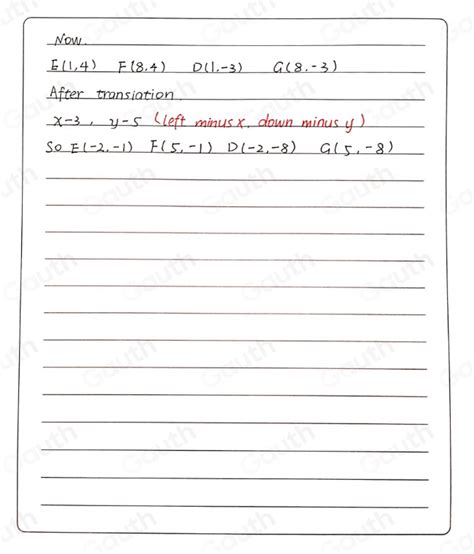 Now.
E(1,4) F(8,4) D(1,-3) G(8,-3)
After translation.
x-3, y-5 (left minus x. down minus y)
So E(-2,-1) F(5,-1) D(-2,-8) G(5,-8)